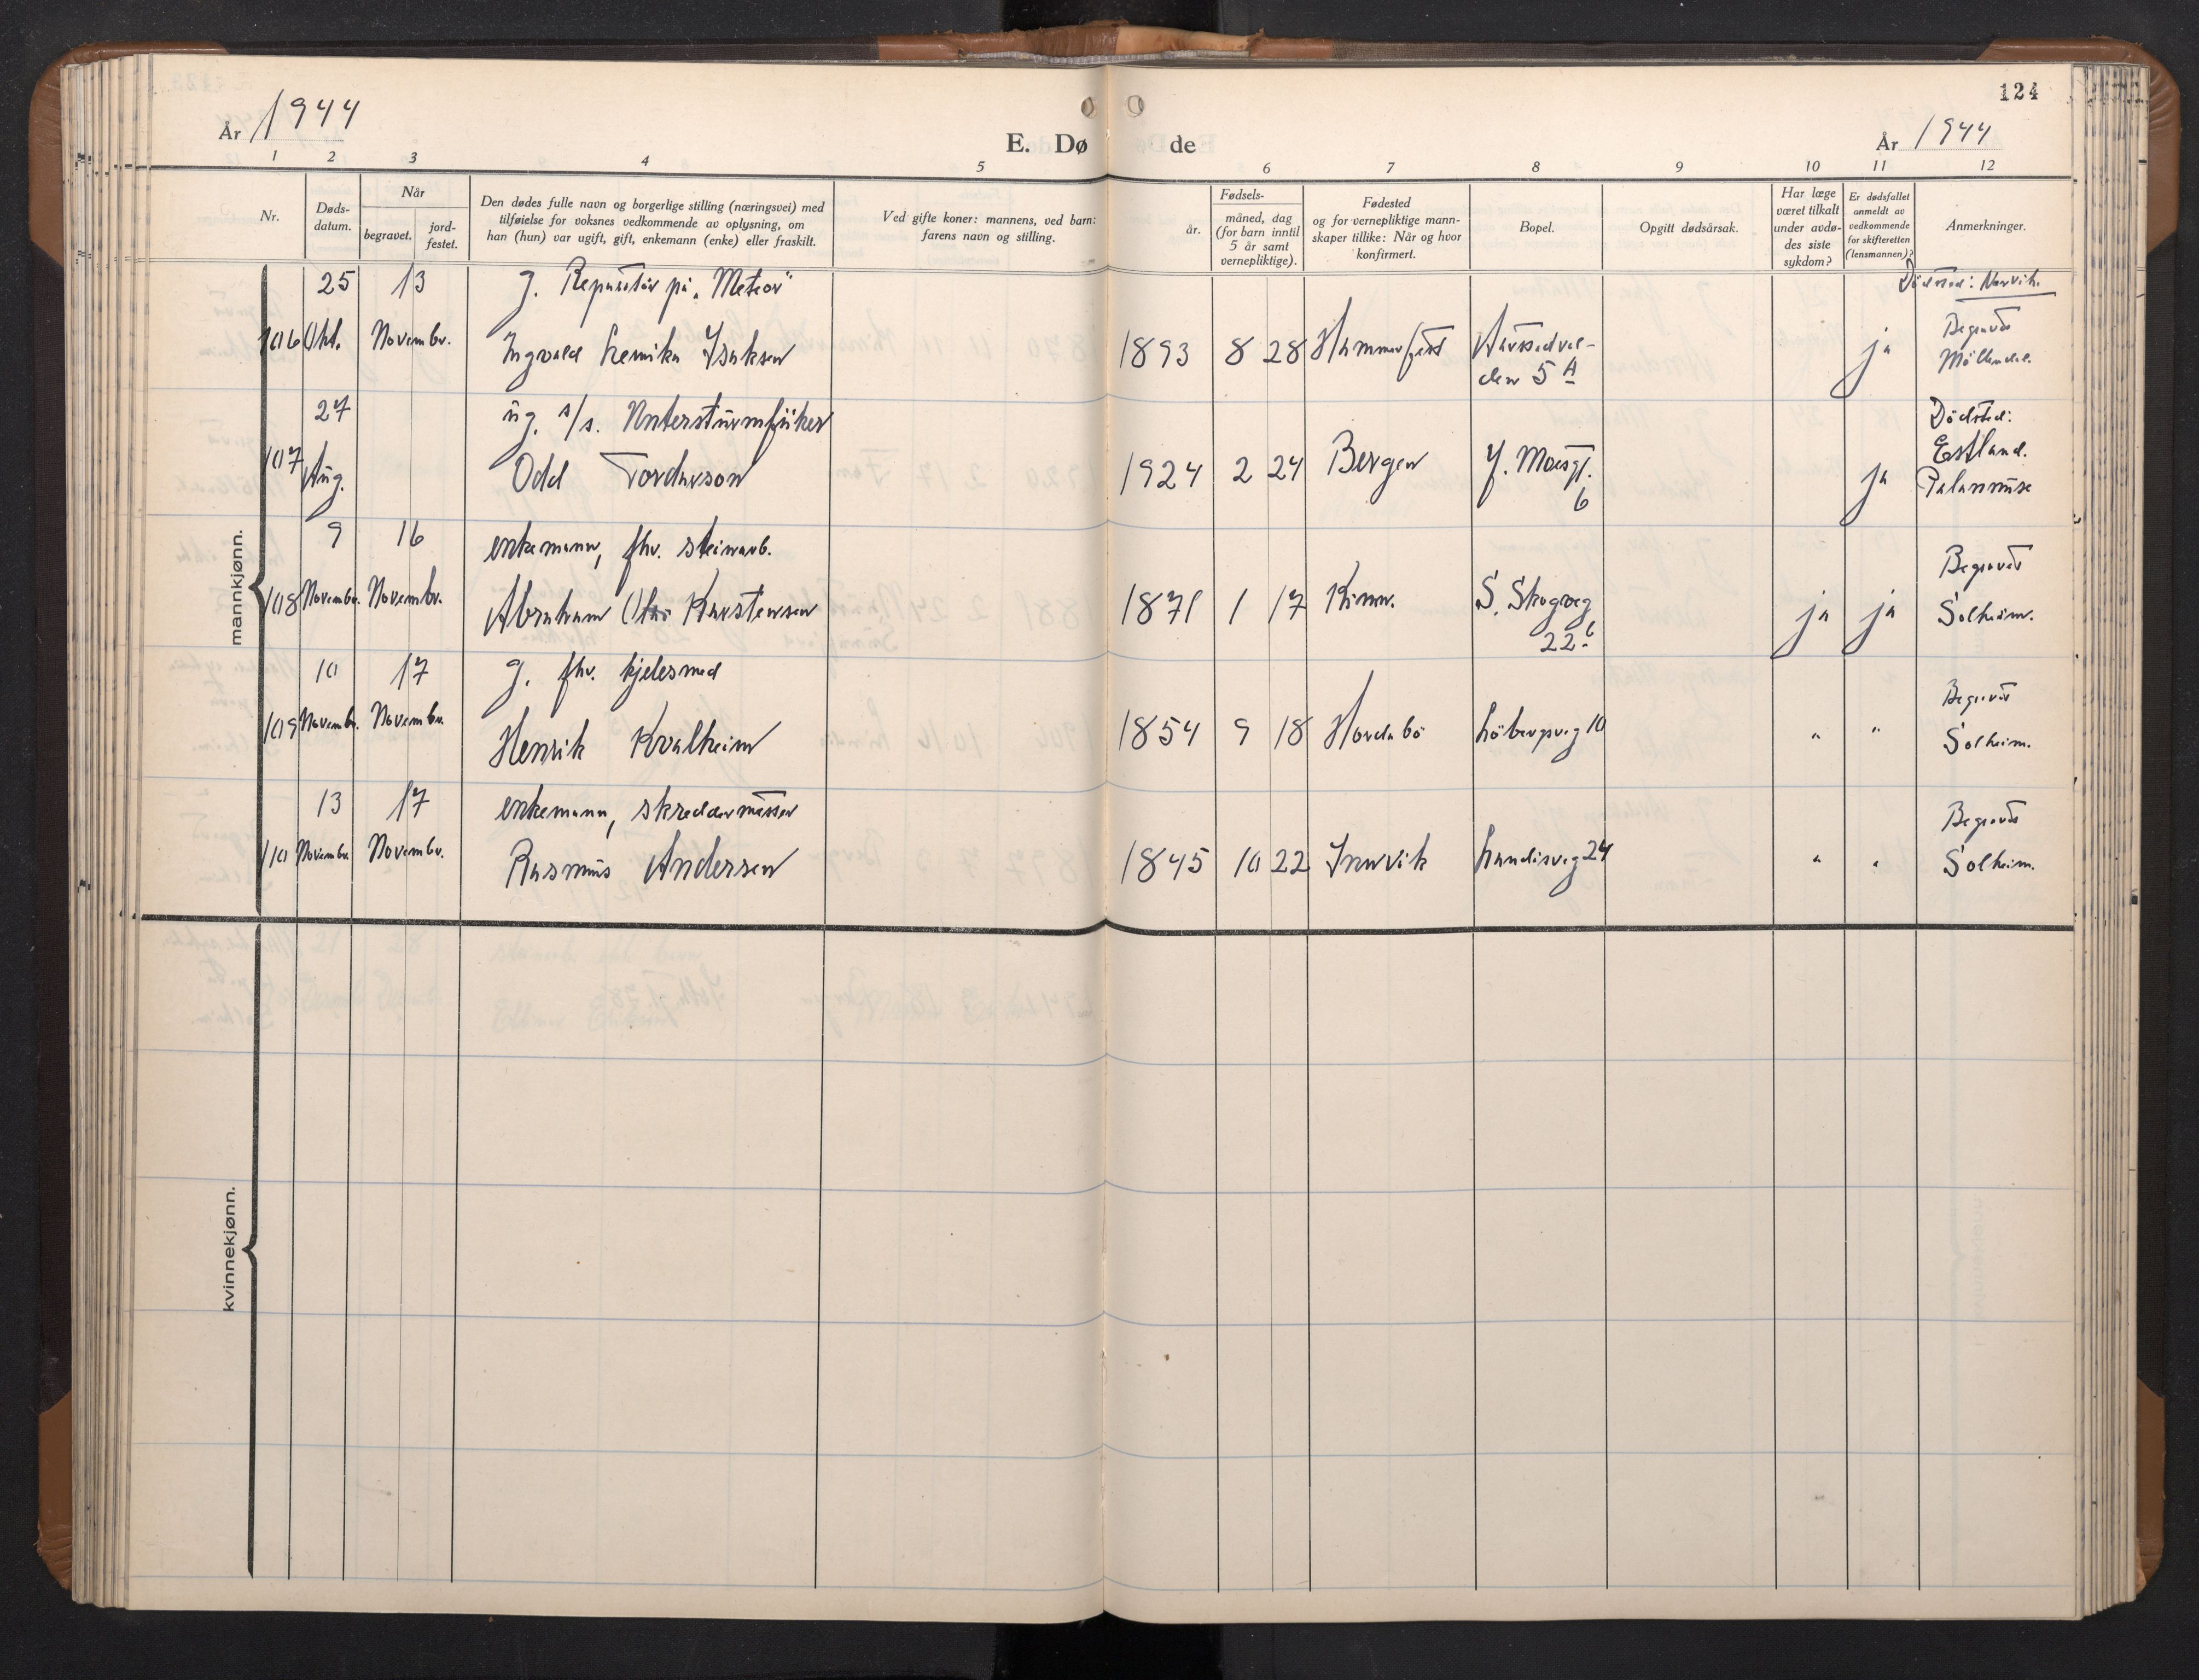 124
År 1944
E. Døde
År 1944
1 2 3 4 5 6 7 8 9 10 11 12
Nr.
Døds-
datum.
Når
begravet.
jord-
festet.
Den dødes fulle navn og borgerlige stilling (næringsvei) med
tilføielse for voksnes vedkommende av oplysning, om
han (hun) var ugift, gift, enkemann (enke) eller fraskilt.
Ved gifte koner: mannens, ved barn:
farens navn og stilling.
Fødsels-
år.
måned, dag
(for barn inntil
5 år samt
vernepliktige).
Fødested
og for vernepliktige mann-
skaper tillike: Når og hvor
konfirmert.
Bopel.
Opgitt dødsårsak.
Har læge
været tilkalt
under avdø-
des siste
sykdom?
Er dødsfallet
anmeldt av
vedkommende
for skifteretten
(lensmannen)?
Anmerkninger.
mannkjønn.
25 13 g. Reparatör på "Meteor" Dödsted: Narvik.
106 Okt. Novembr. Ingvald Henrik Isaksen 1893 8 28 Hammerfest ja Begravet
den 5 A Möllendal.
27 ug. s/s. Untersturmfüker Dödsted:
107 Aug. Odd Tordarson 1924 2 24 Bergen Y. Moesgt. ja Estland.
6 Palamuse
9 16 enkemann, fhv. steinarb. Begravet
108 Novembr. Novembr. Abraham Karstensen 1871 1 17 Kinn. S. Skogveg ja ja Solheim.
22 b
10 17 g. fhv. kjelesmed Begravet
109 Novembr. Novembr. Henrik Kvalheim 1854 9 18 Hordabö Löbergsveg 10 " " Solheim.
13 17 enkemann, skreddermester Begravet
110 Novembr. Novembr. Rasmus Andersen 1845 10 22 Innvik Lundisveg 24 " " Solheim.
kvinnekjønn.